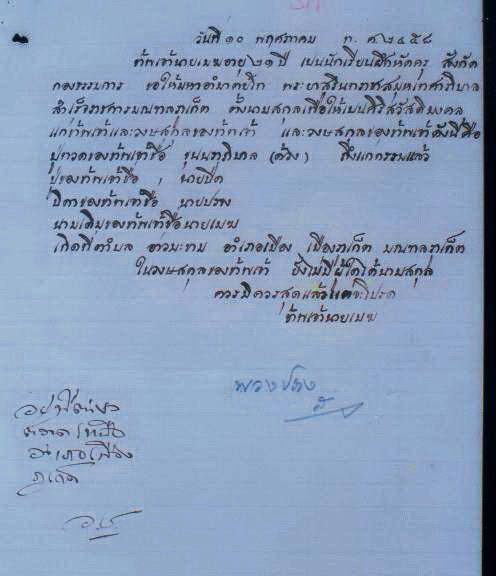 วันที่ ๑๐ พฤศภาคม พ.ศ. ๒๔๕๘
ข้าพเจ้านายเมฆอายุ ๒๑ ปี เปนนักเรียนฝึกหัดครู สังกัด
กองธรรมการ ขอให้มหาอำมาตย์โท พระยาสุรินทราชาสมุหเทศาภิบาล
สำเร็จราชการมณฑลภูเก็ต ตั้งนามสกุลเพื่อให้เปนศิริสวัสดิมงคล
แก่ข้าพเจ้าและวงษสกุลของข้าพเจ้า และวงษสกุลของข้าพเจ้าดังนี้คือ
ปู่ทวดของข้าพเจ้าชื่อ ขุนนราภิบาล (ด้วง) ถึงแก่กรรมแล้ว
ปู่ของข้าพเจ้าชื่อ, นายปีด
บิดาของข้าพเจ้าชื่อ นายปราง
นามเดิมของข้าพเจ้าชื่อนายเมฆ
เกิดที่ตำบล อ่าวมะขาม อำเภอเมือง เมืองภูเก็ต มณฑลภูเก็ต
ในวงษสกุลของข้าพเจ้า ยังไม่มีผู้ใดได้นามสกุล
ควรมิควรสุดแล้วแต่จะโปรด
ข้าพเจ้านายเมฆ
อยู่
ตลาดเหนือ
อำเภอเมือง
ภูเก็ต